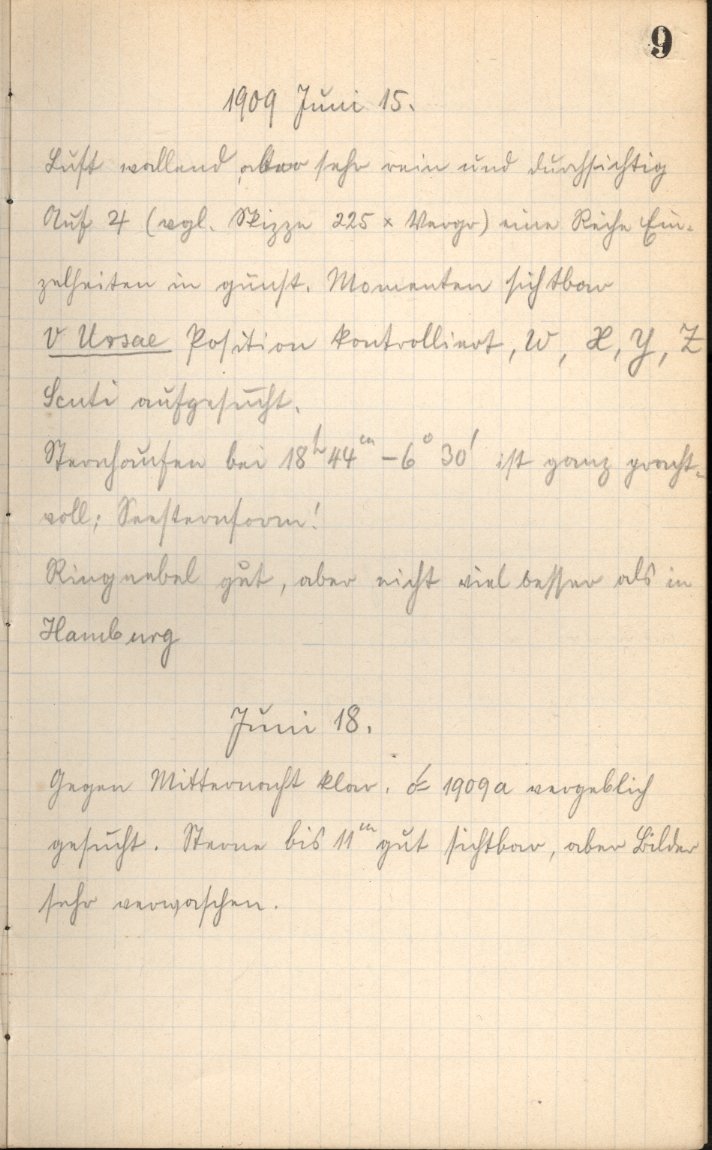 9
1909 Juni 15.
Luft wallend, aber sehr rein und durchsichtig
Auf ♃ (vgl. Skizze 225 × Vergr) eine Reihe Ein-
zelheiten in günst. Momenten sichtbar
V Ursae Position kontrolliert, W, X, Y, Z
Scuti aufgesucht.
Sternhaufen bei 18h 44m – 6° 30' ist ganz pracht-
voll; Seesternform!
Ringnebel gut, aber nicht viel besser als in
Hamburg
Juni 18.
Gegen Mitternacht klar. ☄ 1909a vergeblich
gesucht. Sterne bis 11m gut sichtbar, aber Bilder
sehr verwaschen.